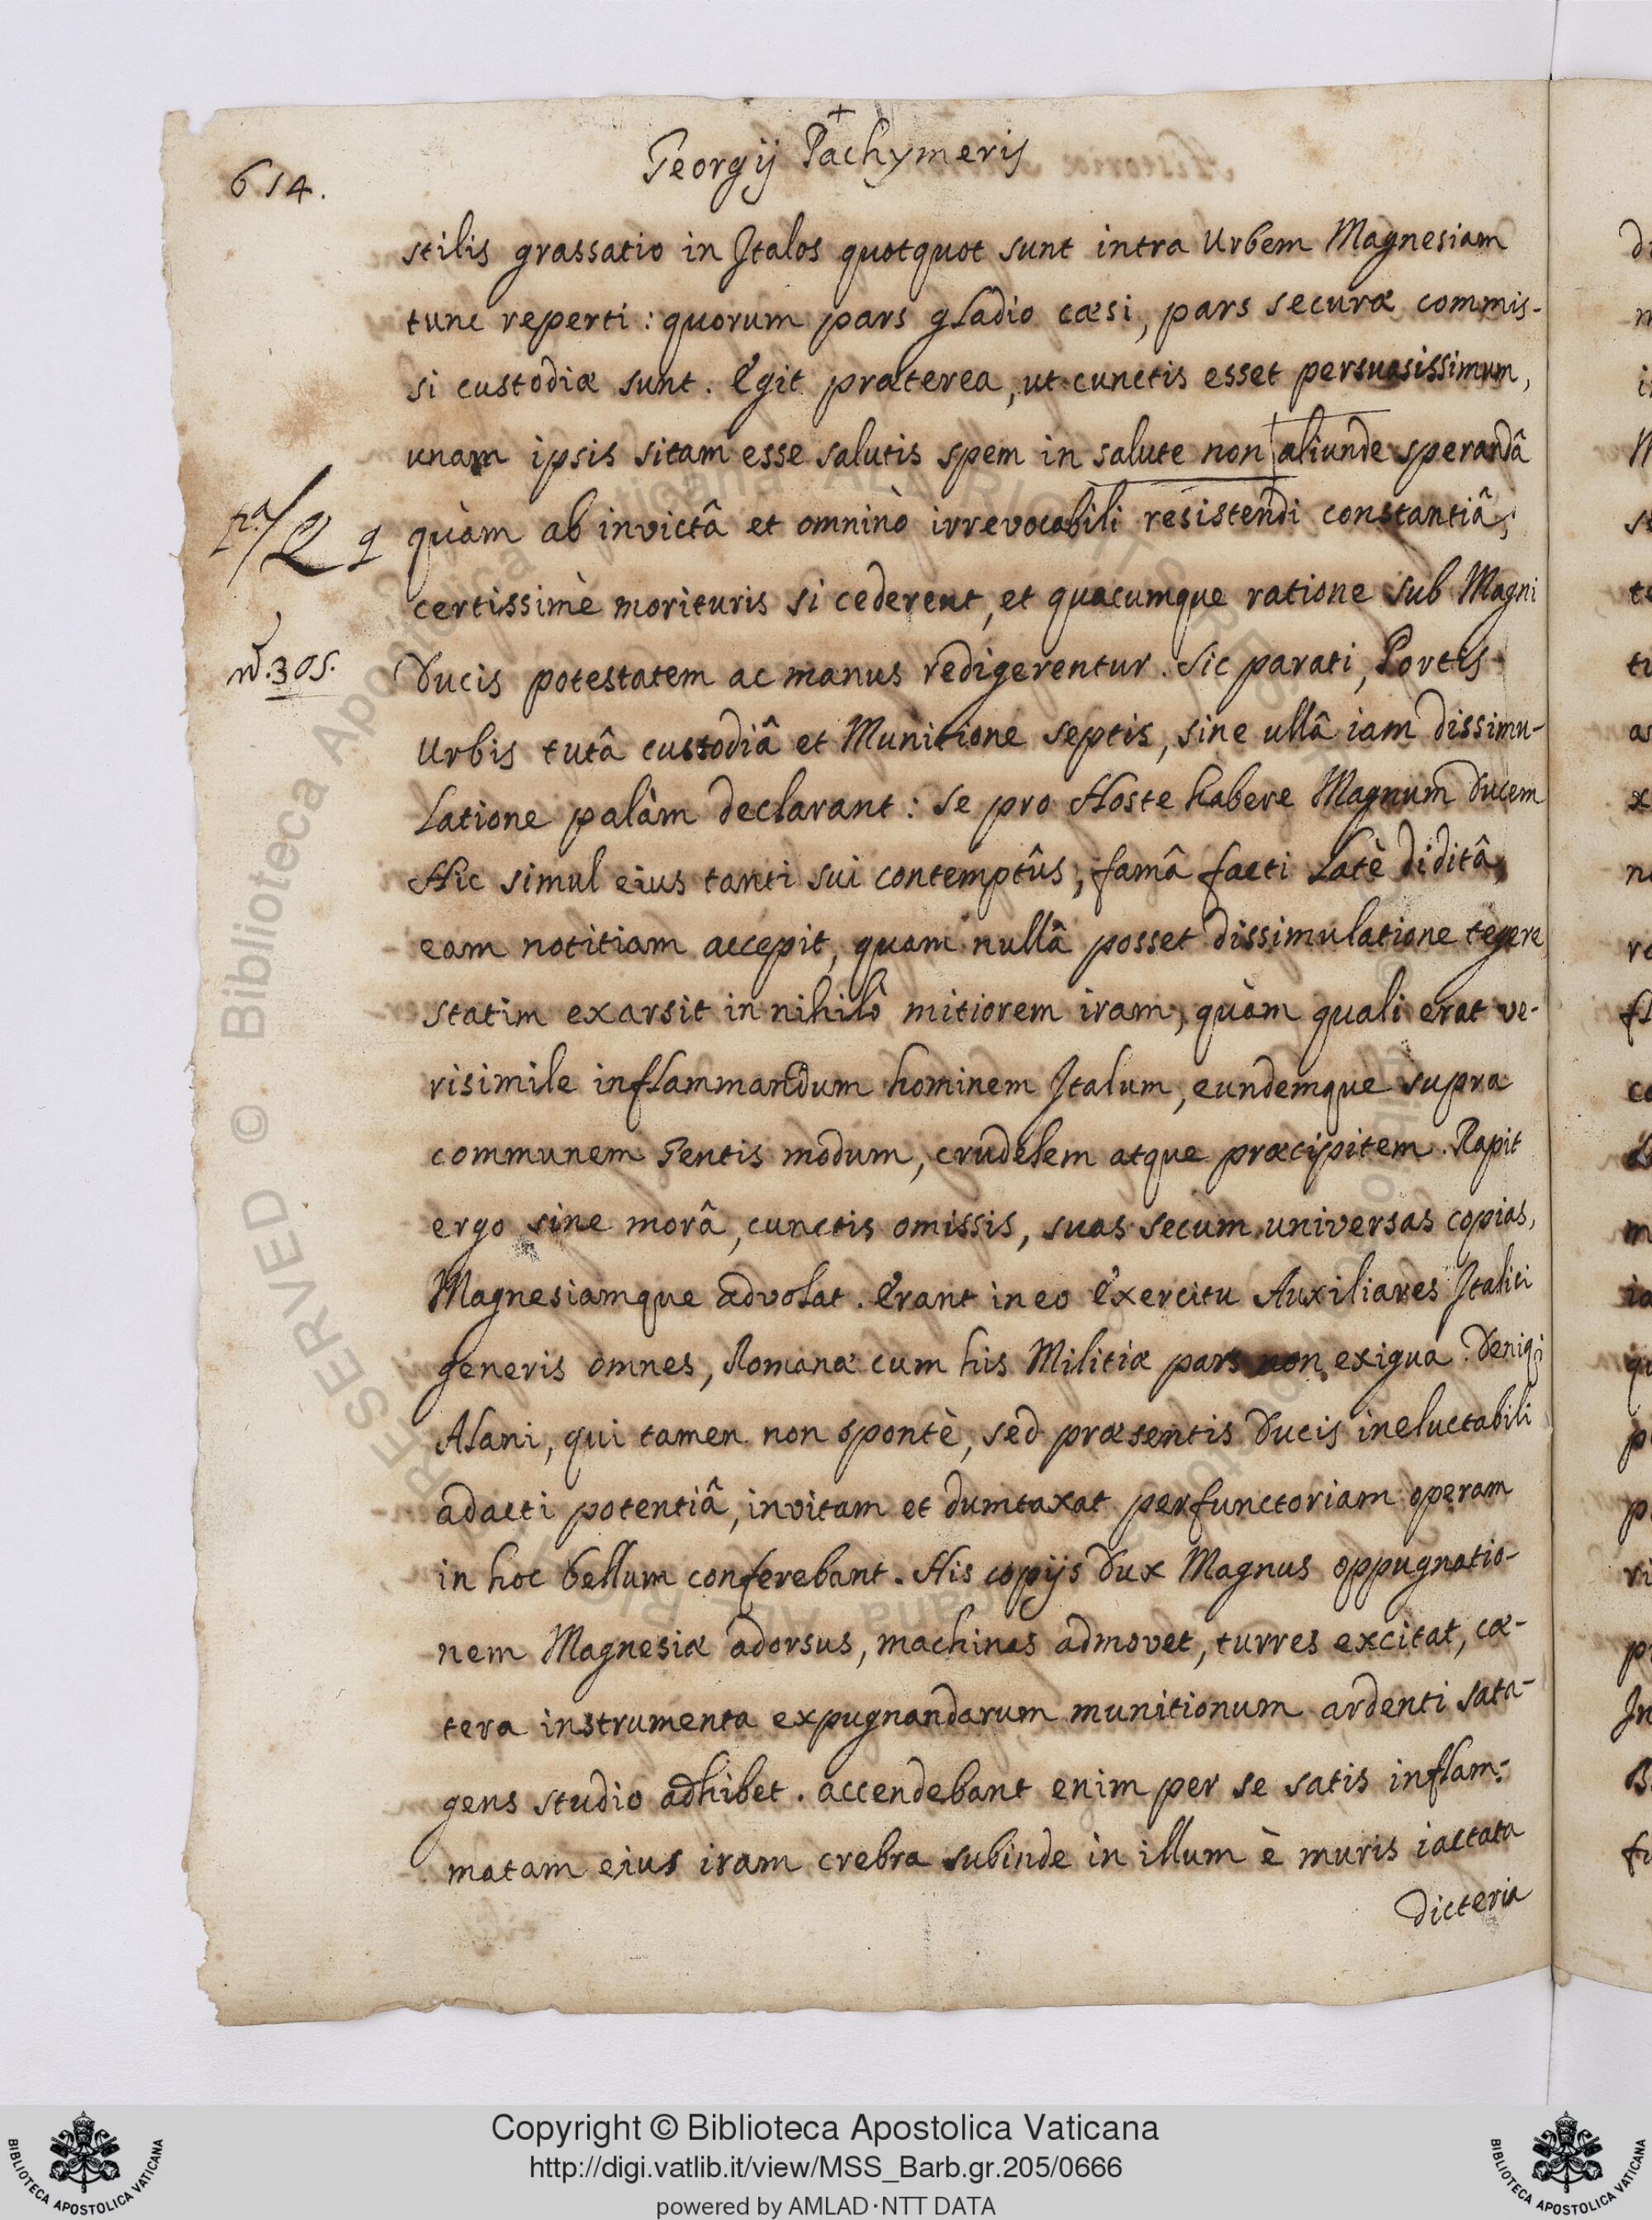 614.
Georgij Pachymeris
stilis grassatio in Italos quotquot sunt intra Urbem Magnesiam
tunc reperti: quorum pars gladio cæsi, pars securæ commis-
si custodiæ sunt. Egit præterea, ut cunctis esset persuasissimum,
unam ipsis sitam esse salutis spem in salute non aliunde sperandâ
quàm ab invictâ et omninò irrevocabili resistendi constantiâ;
certissimè morituris si cederent, et quacumque ratione sub Magni
nᵒ.305.
Ducis potestatem ac manus redigerentur. Sic parati, Portis
Urbis tutâ custodiâ et Munitione septis, sine ullâ iam dissimu-
latione palàm declarant: se pro Hoste habere Magnum Ducem
Hic simul eius tanti sui contemptûs, famâ facti latè diditâ,
eam notitiam accepit, quam nullâ posset dissimulatione tegere,
statim exarsit in nihilò mitiorem iram, quàm quali erat ve-
risimile inflammandum hominem Italum, eundemque supra
communem Gentis modum, crudelem atque præcipitem. Rapit
ergo sine morâ, cunctis omissis, suas secum universas copias,
Magnesiamque advolat. Erant in eo Exercitu Auxiliares Italici
generis omnes, Romanæ cum his Militiæ pars non exigua. Deniqꝫ
Alani, qui tamen non spontè, sed præsentis Ducis ineluctabili
adacti potentiâ, invitam et dumtaxat perfunctoriam operam
in hoc bellum conferebant. His copijs Dux Magnus oppugnatio-
nem Magnesiæ adorsus, machinas admovet, turres excitat, cæ-
tera instrumenta expugnandarum munitionum ardenti sata-
gens studio adhibet. accendebant enim per se satis inflam-
matam eius iram crebra subinde in illum è muris iactata
dicteria
Copyright © Biblioteca Apostolica Vaticana
http://digi.vatlib.it/view/MSS_Barb.gr.205/0666
powered by AMLAD·NTT DATA
BIBLIOTECA APOSTOLICA VATICANA
BIBLIOTECA APOSTOLICA VATICANA